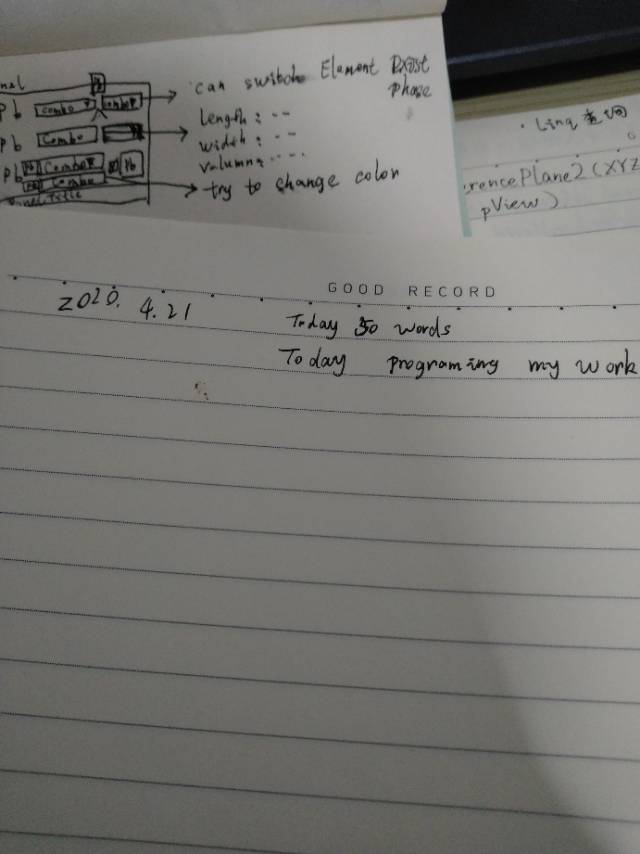 can switch Element Exist
phase
Pb combo combo
length : --
Pb Combo
width : --
volumn : ---
Pb Pb Combo Pb
Combo
try to change color
Linq 查询
rencePlane2 (XYZ
pView)
GOOD RECORD
2020. 4. 21
Today 50 words
Today programing my work